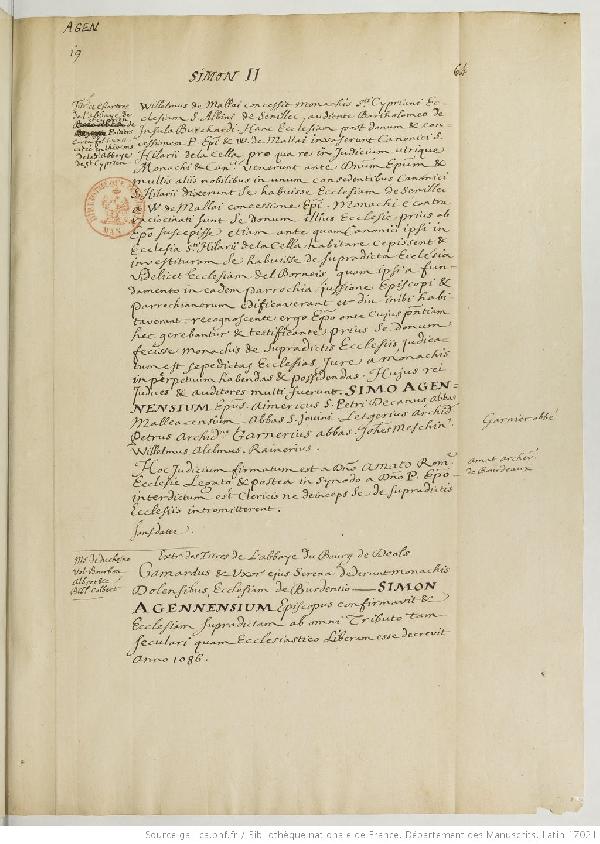 AGEN
19
64
SIMON II
Willelmus de Mallai concessit monachis Sti Cypriani Ec-
clesiam S. Albini de Senillec, audiente Bartholomeo de
Insula Burchardi. Hanc Ecclesiam post donum & con-
cessionem P. Epi & W. de Mallai invaserunt Canonici S.
Hilarii de la Cella pro qua re in Judicium utrique
Monachi & Canci venerunt ante Dnum Episcm &
multis aliis nobilibus in unum consedentibus Canonici
S. Hilarii dixerunt se habuisse Ecclesiam de Senillec
a W. de Mallai concessione Epi. Monachi e contra
raciocinati sunt se donum illius Ecclesie prius ab
Epo suscepisse etiam ante quam Canonici ipsi in
Ecclesia Sti Hilarii de la Cella habitare cepissent &
investituram se habuisse de supradicta Ecclesia
Videlicet Ecclesiam del Borneis quam ipsi a fun-
damento in eadem parrochia jussione Episcopi &
Parrochianorum edificaverant et diu inibi habi-
taverant. recognoscente ergo Epo ante cujus pntiam
hec gerebantur & testificante prius se donum
fecisse monachis de supradictis Ecclesiis, judica-
tum est sepedictas Ecclesias Jure a monachis
in perpetuum habendas & possidendas. Hujus rei
Judices & auditores multi fuerunt. SIMO AGEN-
NENSIUM Epus. Aimericus S. Petri Decanus abbas
Malleacensium. Abbas S. Jovini Letgerius Archid.
Petrus Archid. Garnerius abbas. Johes Meschin.
Willelmus Alelmus. Rainerius.
Hoc Judicium firmatum est a Dno Amato Rom.
Ecclesie Legato & postea in Synodo a Dno P. Epo
interdictum est Clericis ne deinceps se de supradictis
Ecclesiis intromitterent.
sans datte.
Garnier abbé
Amat archev.
de Bourdeaux
Extr. des Titres de l'abbaye du Bourg de Deols
Gamardus & Uxor ejus Serena dederunt monachis
Dolensibus, Ecclesiam de Burdentio SIMON
AGENNENSIUM Episcopus confirmavit &
Ecclesiam supradictam ab omni Tributo tam
seculari quam Ecclesiastico Liberam esse decrevit
anno 1086.